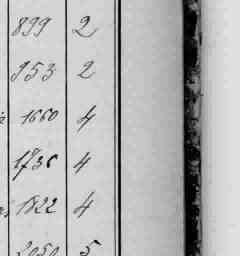 899 2
953 2
1660 4
1736 4
1822 4
2050 5